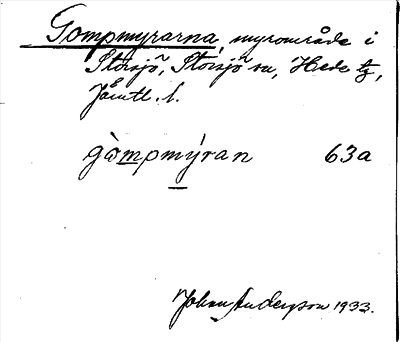 Gompmyrarna, myrområde i
Storsjö, Storsjö sn, Hede tg,
Jämtl. l.
gòmpmýran 63a
Johan Anderson 1933.